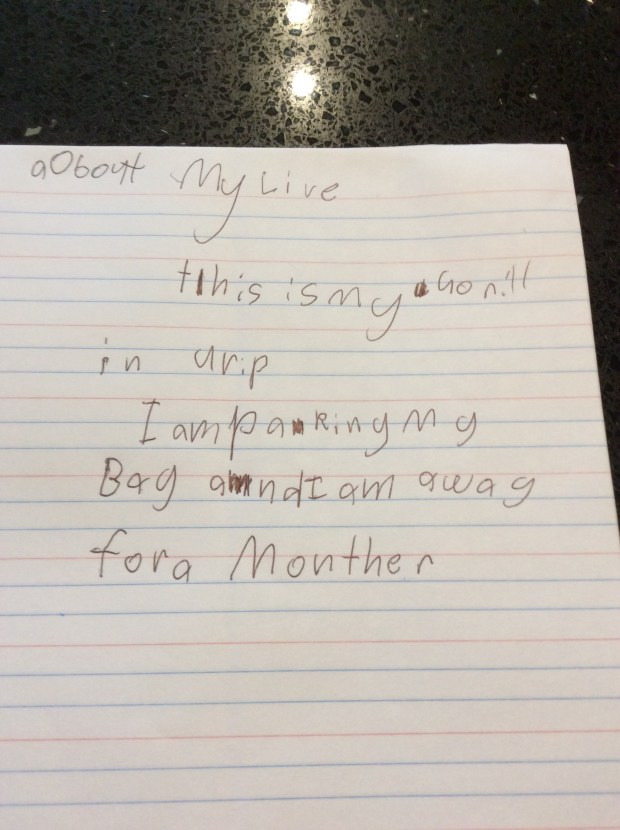 aObout My Live
tthis is my Gonill
in urip
I am Panking My
Bag and I am away
for a Monther